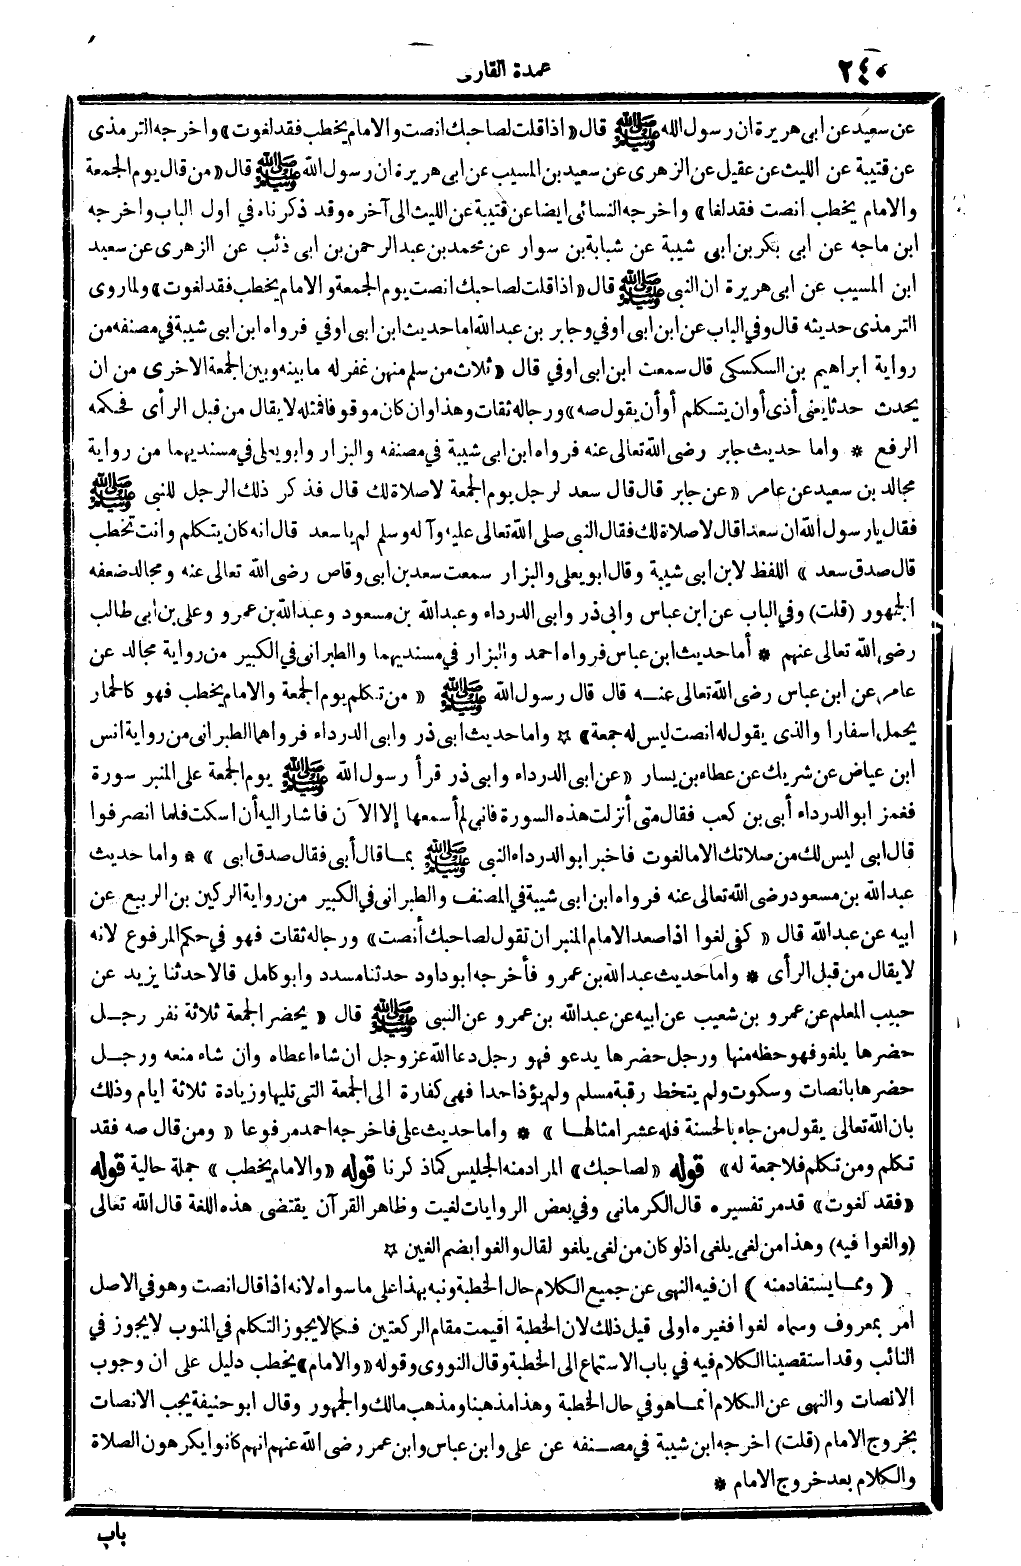 ٢٤٠
عمدة القارى
عن سعيد عن ابى هريرة ان رسول الله ﷺ قال «اذا قلت لصاحبك انصت والامام يخطب فقد لغوت» واخرجه الترمذى
عن قتيبة عن الليث عن عقيل عن الزهرى عن سعيد بن المسيب عن ابى هريرة ان رسول الله ﷺ قال «من قال يوم الجمعة
والامام يخطب انصت فقد لغا» واخرجه النسائى ايضا عن قتيبة عن الليث الى آخره وقد ذكرناه فى اول الباب واخرجه
ابن ماجه عن ابى بكر بن ابى شيبة عن شبابة بن سوار عن محمد بن عبد الرحمن بن ابى ذئب عن الزهرى عن سعيد
ابن المسيب عن ابى هريرة ان النبى ﷺ قال «اذا قلت لصاحبك انصت يوم الجمعة والامام يخطب فقد لغوت» ولما روى
الترمذى حديثه قال وفى الباب عن ابن ابى اوفى وجابر بن عبد الله اما حديث ابن ابى اوفى فرواه ابن ابى شيبة فى مصنفه من
رواية ابراهيم بن السكسكى قال سمعت ابن ابى اوفى قال «ثلاث من سلم منهن غفر له ما بينه وبين الجمعة الاخرى من ان
يحدث حدثا يعنى أذى أو ان يتكلم أو أن يقول صه» ورجاله ثقات وهذا وان كان موقوفا فمثله لا يقال من قبل الرأى فحكمه
الرفع * واما حديث جابر رضى الله تعالى عنه فرواه ابن ابى شيبة فى مصنفه والبزار وابو يعلى فى مسنديهما من رواية
مجالد بن سعيد عن عامر «عن جابر قال قال سعد لرجل يوم الجمعة لا صلاة لك قال فذكر ذلك الرجل للنبى ﷺ
فقال يارسول الله ان سعدا قال لا صلاة لك فقال النبى صلى الله تعالى عليه وآله وسلم لم ياسعد قال انه كان يتكلم وانت تخطب
قال صدق سعد» اللفظ لابن ابى شيبة وقال ابو يعلى والبزار سمعت سعد بن ابى وقاص رضى الله تعالى عنه ومجالد ضعفه
الجمهور (قلت) وفى الباب عن ابن عباس وابى ذر وابى الدرداء وعبد الله بن مسعود وعبد الله بن عمرو وعلى بن ابى طالب
رضى الله تعالى عنهم * أما حديث ابن عباس فرواه احمد والبزار فى مسنديهما والطبرانى فى الكبير من رواية مجالد عن
عامر عن ابن عباس رضى الله تعالى عنه قال قال رسول الله ﷺ «من تكلم يوم الجمعة والامام يخطب فهو كالحمار
يحمل اسفارا والذى يقول له انصت ليس له جمعة» * واما حديث ابى ذر وابى الدرداء فرواهما الطبرانى من رواية انس
ابن عياض عن شريك عن عطاء بن يسار «عن ابى الدرداء وابى ذر قرأ رسول الله ﷺ يوم الجمعة على المنبر سورة
فغمز ابو الدرداء أبى بن كعب فقال متى أنزلت هذه السورة فانى لم أسمعها إلا الآن فاشار اليه أن اسكت فلما انصرفوا
قال ابى ليس لك من صلاتك الا ما لغوت فاخبر ابو الدرداء النبى ﷺ بما قال أبى فقال صدق ابى» * واما حديث
عبد الله بن مسعود رضى الله تعالى عنه فرواه ابن ابى شيبة فى المصنف والطبرانى فى الكبير من رواية الركين بن الربيع عن
ابيه عن عبد الله قال «كفى لغوا اذا صعد الامام المنبر ان تقول لصاحبك أنصت» ورجاله ثقات فهو فى حكم المرفوع لانه
لا يقال من قبل الرأى * واما حديث عبد الله بن عمرو فأخرجه ابو داود حدثنا مسدد وابو كامل قالا حدثنا يزيد عن
حبيب المعلم عن عمرو بن شعيب عن ابيه عن عبد الله بن عمرو عن النبى ﷺ قال «يحضر الجمعة ثلاثة نفر رجل
حضرها يلغو فهو حظه منها ورجل حضرها يدعو فهو رجل دعا الله عز وجل ان شاء اعطاه وان شاء منعه ورجل
حضرها بانصات وسكوت ولم يتخط رقبة مسلم ولم يؤذ احدا فهى كفارة الى الجمعة التى تليها وزيادة ثلاثة ايام وذلك
بان الله تعالى يقول من جاء بالحسنة فله عشر امثالها» * واما حديث على فاخرجه احمد مرفوعا «ومن قال صه فقد
تكلم ومن تكلم فلا جمعة له» قوله «لصاحبك» المراد منه الجليس كما ذكرنا قوله «والامام يخطب» جملة حالية قوله
«فقد لغوت» قد مر تفسيره قال الكرمانى وفى بعض الروايات لغيت وظاهر القرآن يقتضى هذه اللغة قال الله تعالى
(والغوا فيه) وهذا من لغى يلغى اذ لو كان من لغى يلغو لقال والغوا بضم الغين *
(ومما يستفاد منه) ان فيه النهى عن جميع الكلام حال الخطبة ونبه بهذا على ما سواه لانه اذا قال انصت وهو فى الاصل
امر بمعروف وسماه لغوا فغيره اولى قيل ذلك لان الخطبة اقيمت مقام الركعتين فكما لا يجوز التكلم فى المنوب لا يجوز فى
النائب وقد استقصينا الكلام فيه فى باب الاستماع الى الخطبة وقال النووى وقوله «والامام» يخطب دليل على ان وجوب
الانصات والنهى عن الكلام انما هو فى حال الخطبة وهذا مذهبنا ومذهب مالك والجمهور وقال ابو حنيفة يجب الانصات
بخروج الامام (قلت) اخرجه ابن شيبة فى مصنفه عن على وابن عباس وابن عمر رضى الله عنهم انهم كانوا يكرهون الصلاة
والكلام بعد خروج الامام *
باب